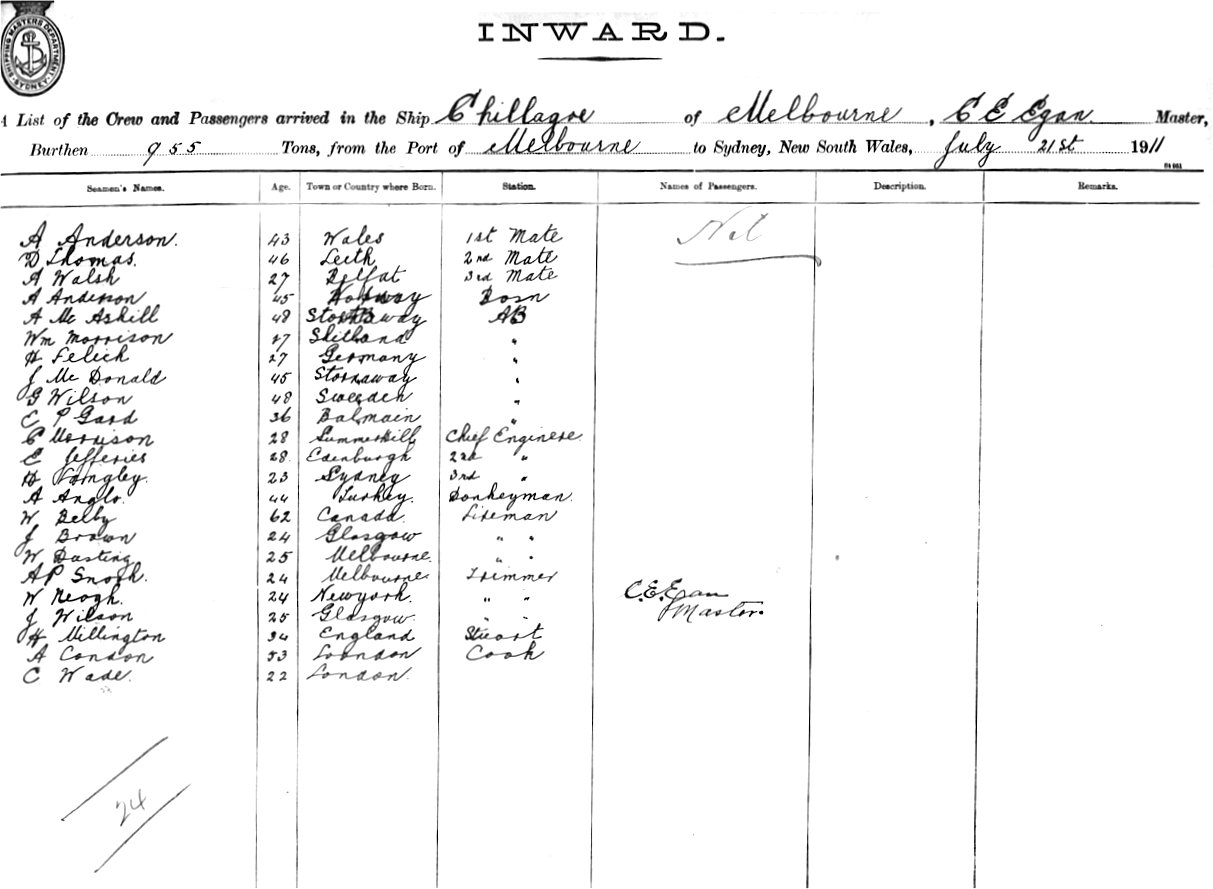 SHIPPING MASTERS DEPARTMENT SYDNEY
INWARD.
A List of the Crew and Passengers arrived in the Ship Chillagoe of Melbourne, C E Egan Master,
Burthen 955 Tons, from the Port of Melbourne to Sydney, New South Wales, July 21st 1911
Seamen's Names. Age. Town or Country where Born. Station. Names of Passengers. Description. Remarks.
A Anderson. 43 Wales 1st Mate Nil
D Thomas. 46 Leith 2nd Mate
A Walsh 27 Belfat 3rd Mate
A Anderson 45 Norway Bosn
A Mc Askill 48 Stornaway AB
Wm Morrison 27 Shitland "
H Felich 27 Germany "
J Mc Donald 45 Stornaway "
G Wilson 48 Sweden "
C P Gard 36 Balmain "
C Morrison 28 Summerhill Chief Enginere
E Jefferies 28. Edenburgh 2nd "
H Langley. 23 Sydney 3rd "
A Anglo. 44 Turkey. Donkeyman.
W Belby 62 Canada. Fireman
J Brown 24 Glasgow " "
W Dusting 25 Melbourne. " "
A P 24 Melbourne. Trimmer
W Keogh. 24 Newyork. " " C.E. Egan
J Wilson 25 Glasgow. " " Master.
H Millington 34 England Stuart
A Condon 53 Loondon Cook
C Wade. 22 London.
24